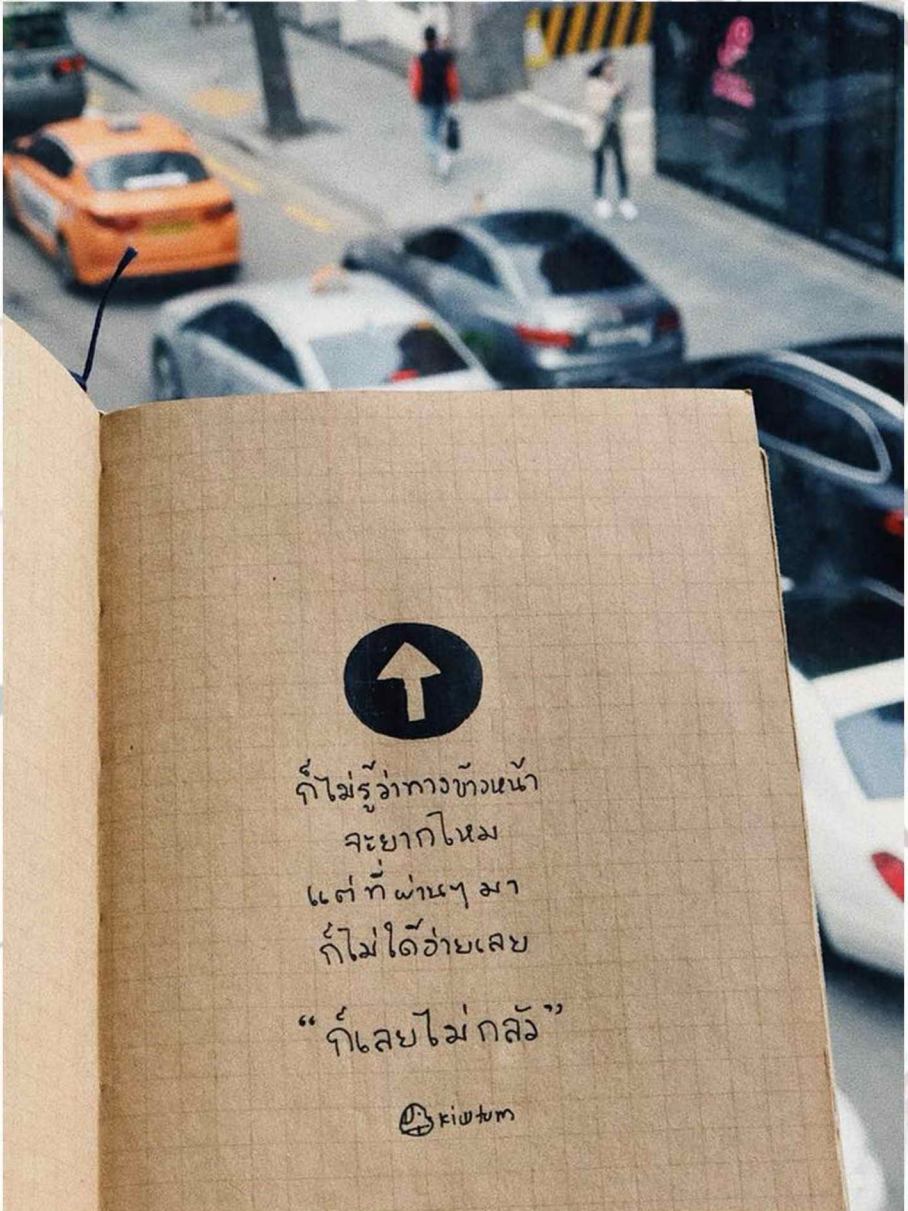 ก็ไม่รู้ว่าทางข้างหน้า
จะยากไหม
แต่ที่ผ่านๆ มา
ก็ไม่ได้ง่ายเลย
“ก็เลยไม่กลัว”
kiwtum